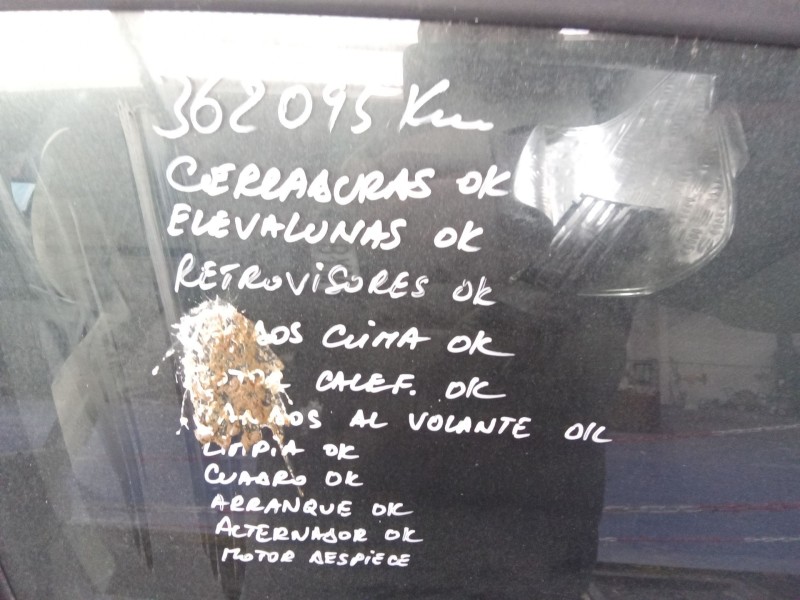 362095 Km
CERRADURAS OK
ELEVALUNAS OK
RETROVISORES OK
CLIMA OK
CALEF. OK
AL VOLANTE OK
LIMPIA OK
CUADRO OK
ARRANQUE OK
ALTERNADOR OK
MOTOR DESPIECE